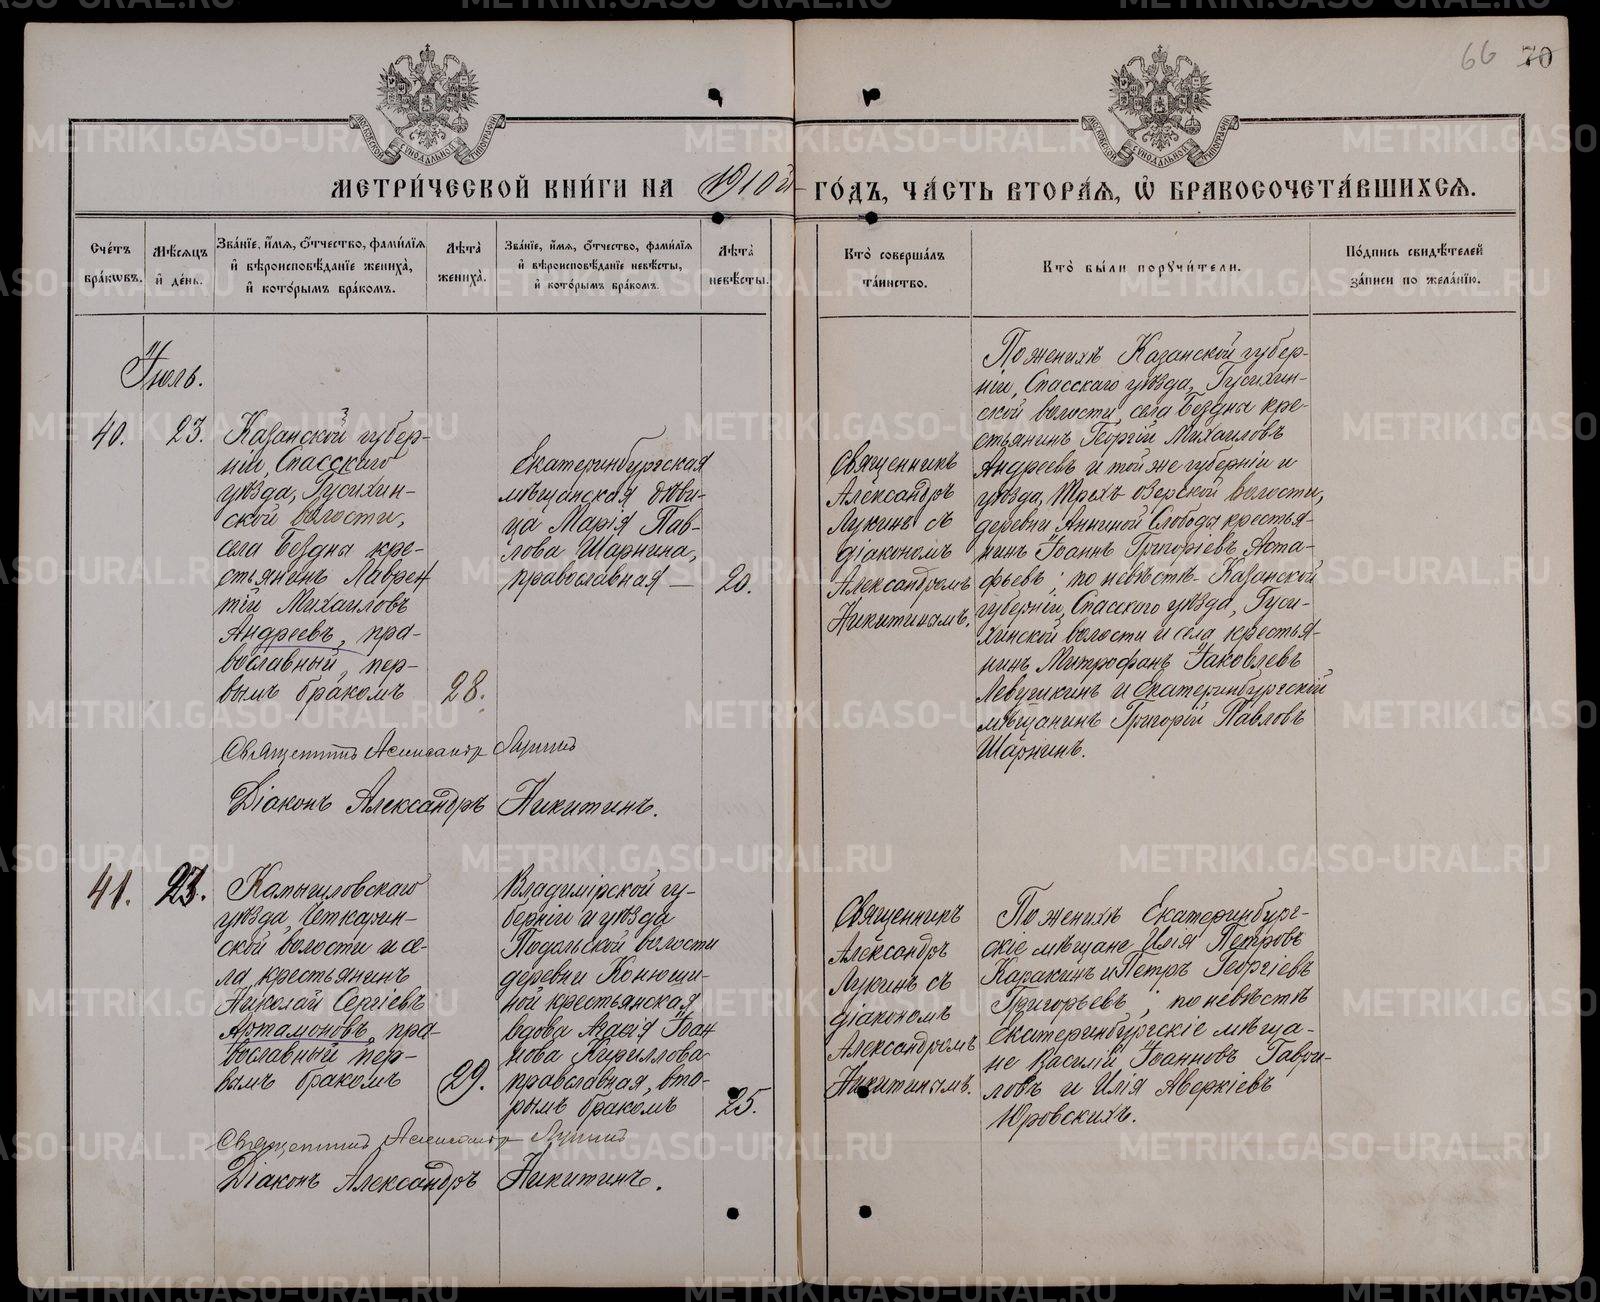 66 70
МОСКОВСКОЙ СѴНОДАЛЬНОЙ ТИПОГРАФІИ
МОСКОВСКОЙ СѴНОДАЛЬНОЙ ТИПОГРАФІИ
МЕТРИ́ЧЕСКОЙ КНИ́ГИ НА 1910й ГО́ДЪ, ЧА́СТЬ ВТОРА́Я, Ѽ БРАКОСОЧЕТА́ВШИХСѦ.
Сче́тъ
бра́кѡвъ.
Мѣ́сяцъ
и҆ де́нь.
Зва́нїе, и҆́мя, ѻ҆́тчество, фами́лїя
и҆ вѣроисповѣ́данїе жениха̀,
и҆ кото́рымъ бра́комъ.
Лѣ̀та̀
жениха̀.
Зва́нїе, и҆́мя, ѻ҆́тчество, фами́лїя
и҆ вѣроисповѣ́данїе невѣ́сты,
и҆ кото́рымъ бра́комъ.
Лѣ̀та̀
невѣ́сты.
Кто̀ соверша́лъ
та́инство.
Кто̀ бы́ли порꙋчи́тели.
По́дпись свидѣ́телей
за́писи по жела́нїю.
Іюль.
40. 23.
Казанской губер-
ніи, Спасскаго
уѣзда, Гусихин-
ской волости,
села Бездны кре-
стьянинъ Лаврен
тій Михаиловъ
Андреевъ, пра-
вославный, пер-
вымъ бракомъ
28.
Екатеринбургская
мѣщанская дѣви-
ца Марія Пав-
лова Шарнина,
православная —
20.
Священникъ
Александръ
Лукинъ съ
діакономъ
Александромъ
Никитинымъ.
По женихѣ Казанской губер-
ніи, Спасскаго уѣзда, Гусихин-
ской волости, села Бездны кре-
стьянинъ Георгій Михаиловъ
Андреевъ и той же губерніи и
уѣзда, Трехъ-озерской волости,
деревни Анниной Слободы крестья-
нинъ Іоаннъ Григоріевъ Аста-
фьевъ; по невѣстѣ - Казанской
губерніи, Спасскаго уѣзда, Гуси-
хинской волости и села крестья-
нинъ Митрофанъ Іаковлевъ
Левушкинъ и Екатеринбургскій
мѣщанинъ Григорій Павловъ
Шарнинъ.
Священникъ Александръ Лукинъ
Діаконъ Александръ Никитинъ.
41. 23.
Камышловскаго
уѣзда, Четкарин-
ской волости и се-
ла крестьянинъ
Николай Сергіевъ
Артамоновъ, пра-
вославный пер-
вымъ бракомъ
29.
Владимірской гу-
берніи и уѣзда
Подольской волости
деревни Конюши-
ной крестьянская
вдова Марія Іоан
нова Кириллова
православная, вто-
рымъ бракомъ
25.
Священникъ
Александръ
Лукинъ съ
діакономъ
Александромъ
Никитинымъ.
По женихѣ Екатеринбург-
скіе мѣщане Илія Петровъ
Каракинъ и Петръ Георгіевъ
Григорьевъ; по невѣстѣ
Екатеринбургскіе мѣща-
не Василій Іоанновъ Гаври-
ловъ и Илія Аверкіевъ
Юровскихъ.
Священникъ Александръ Лукинъ
Діаконъ Александръ Никитинъ.